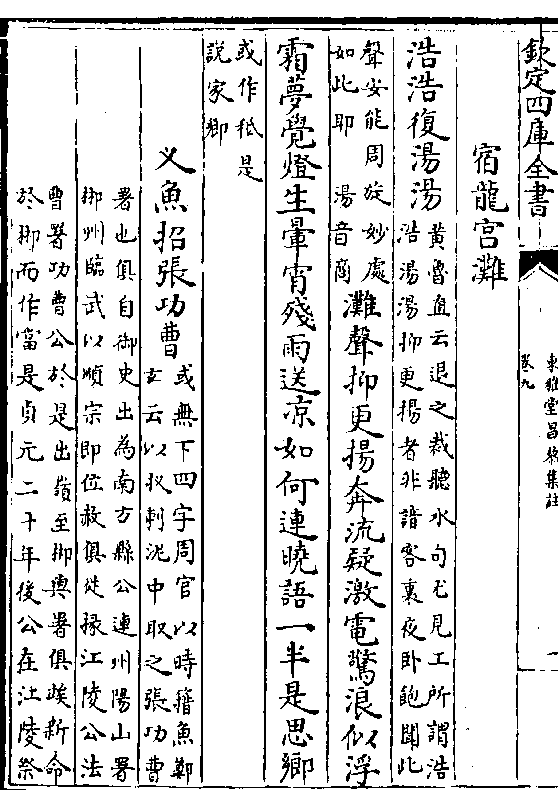 欽定四庫全書
東雅堂昌黎集註
卷九
一
宿龍宮灘
浩浩復湯湯
黃魯直云退之裁聽水句尤見工所謂浩
浩湯湯抑更揚者非諳客裏夜卧飽聞此
聲安能周旋妙處
如此耶 湯音商
灘聲抑更揚奔流疑激電驚浪似浮
霜夢覺燈生暈宵殘雨送凉如何連曉語一半是思鄉
或作秪是
說家鄉
叉魚招張功曹
或無下四字周官以時簎魚鄭
玄云以杈刺泥中取之張功曹
署也俱自御史出為南方縣公連州陽山署
郴州臨武以順宗即位赦俱徙掾江陵公法
曹署功曹公於是出嶺至郴與署俱竢新命
於郴而作當是貞元二十年後公在江陵祭